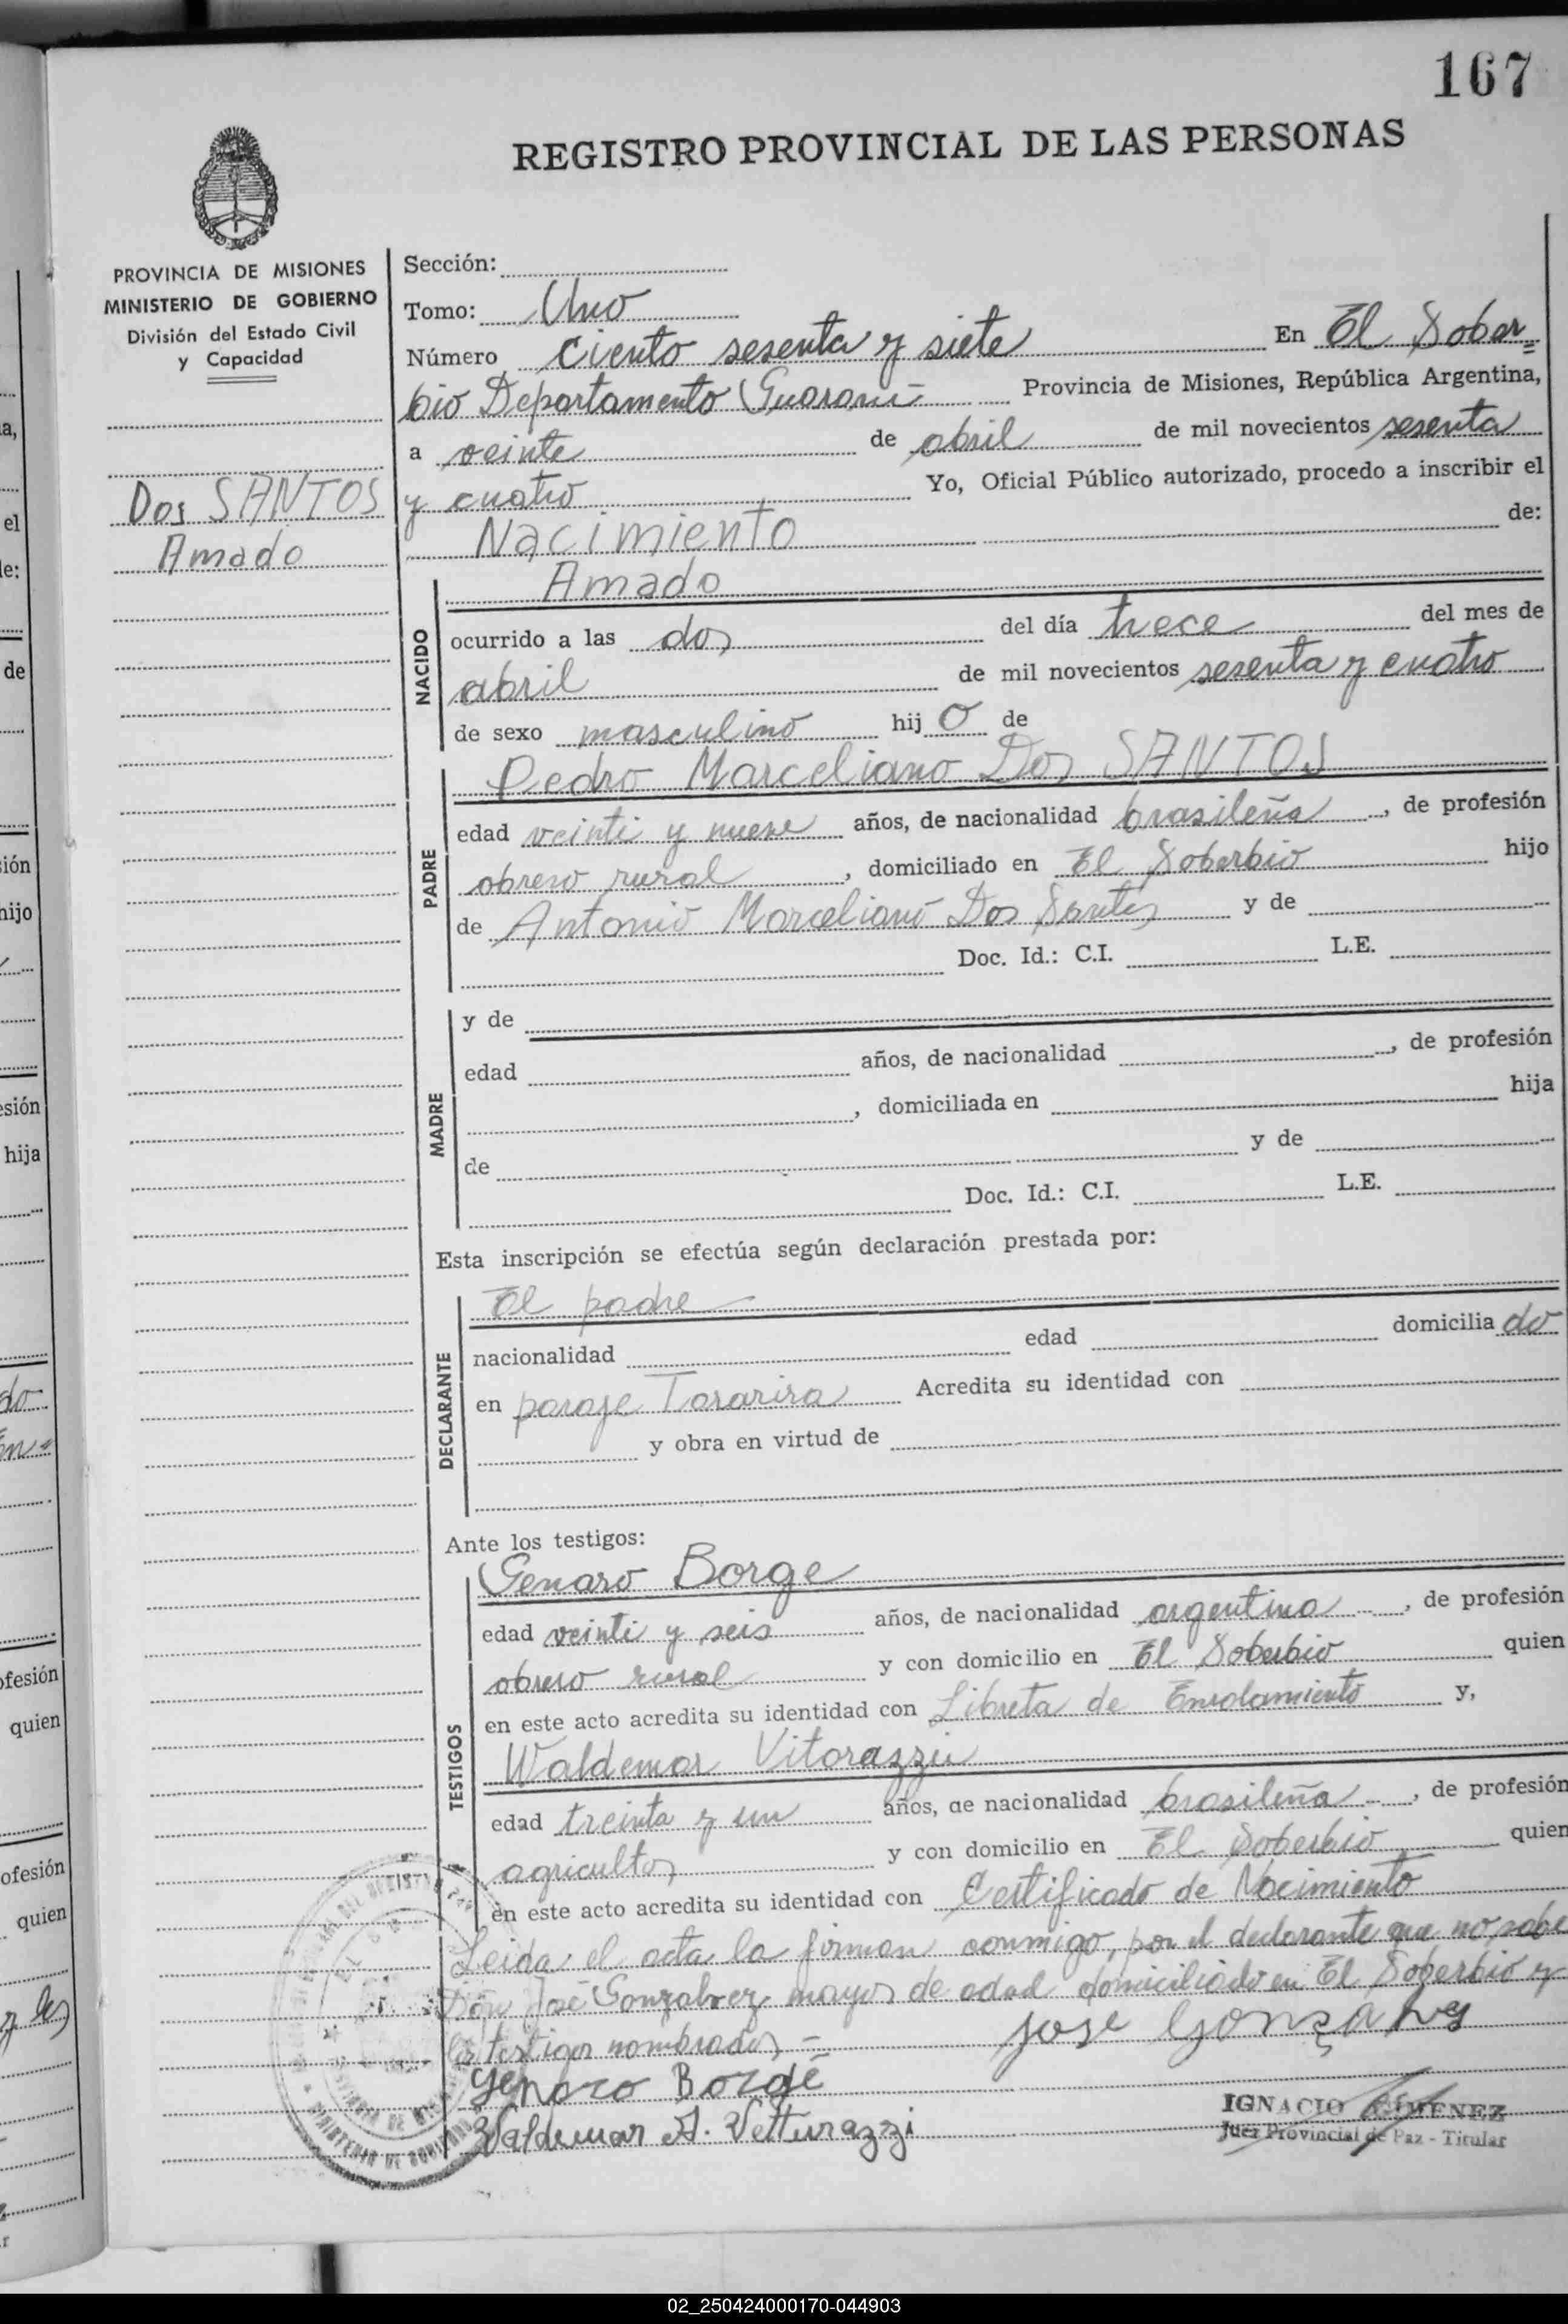 167
REGISTRO PROVINCIAL DE LAS PERSONAS
PROVINCIA DE MISIONES
MINISTERIO DE GOBIERNO
División del Estado Civil
y Capacidad
Dos SANTOS
Amado
Sección:
Tomo: Uno
Número ciento sesenta y siete En El Sober=
bio Departamento Guaraní Provincia de Misiones, República Argentina,
a veinte de abril de mil novecientos sesenta
y cuatro Yo, Oficial Público autorizado, procedo a inscribir el
Nacimiento de:
NACIDO
Amado
ocurrido a las dos del día trece del mes de
abril de mil novecientos sesenta y cuatro
de sexo masculino hijo de
PADRE
Pedro Marceliano Dos SANTOS
edad veinti y nueve años, de nacionalidad brasileña, de profesión
obrero rural, domiciliado en El Soberbio hijo
de Antonio Marceliano Dos Santos y de
Doc. Id.: C.I. L.E.
MADRE
y de
edad años, de nacionalidad , de profesión
, domiciliada en hija
de y de
Doc. Id.: C.I. L.E.
Esta inscripción se efectúa según declaración prestada por:
DECLARANTE
El padre
nacionalidad edad domiciliado
en paraje Tararira Acredita su identidad con
y obra en virtud de
Ante los testigos:
TESTIGOS
Genaro Borge
edad veinti y seis años, de nacionalidad argentina, de profesión
obrero rural y con domicilio en El Soberbio quien
en este acto acredita su identidad con Libreta de Enrolamiento y,
Waldemar Vitorazzi
edad treinta y un años, de nacionalidad brasileña, de profesión
agricultor y con domicilio en El Soberbio quien
en este acto acredita su identidad con Certificado de Nacimiento
Leida el acta la firman conmigo, por el declarante que no sabe
Don José Gonzalvez mayor de edad domiciliado en El Soberbio y
los testigos nombrados =
Jose Gonçalves
Genaro Borge
Valdemar A. Vetturazzi
IGNACIO GIMENEZ
Juez Provincial de Paz - Titular
02_250424000170-044903